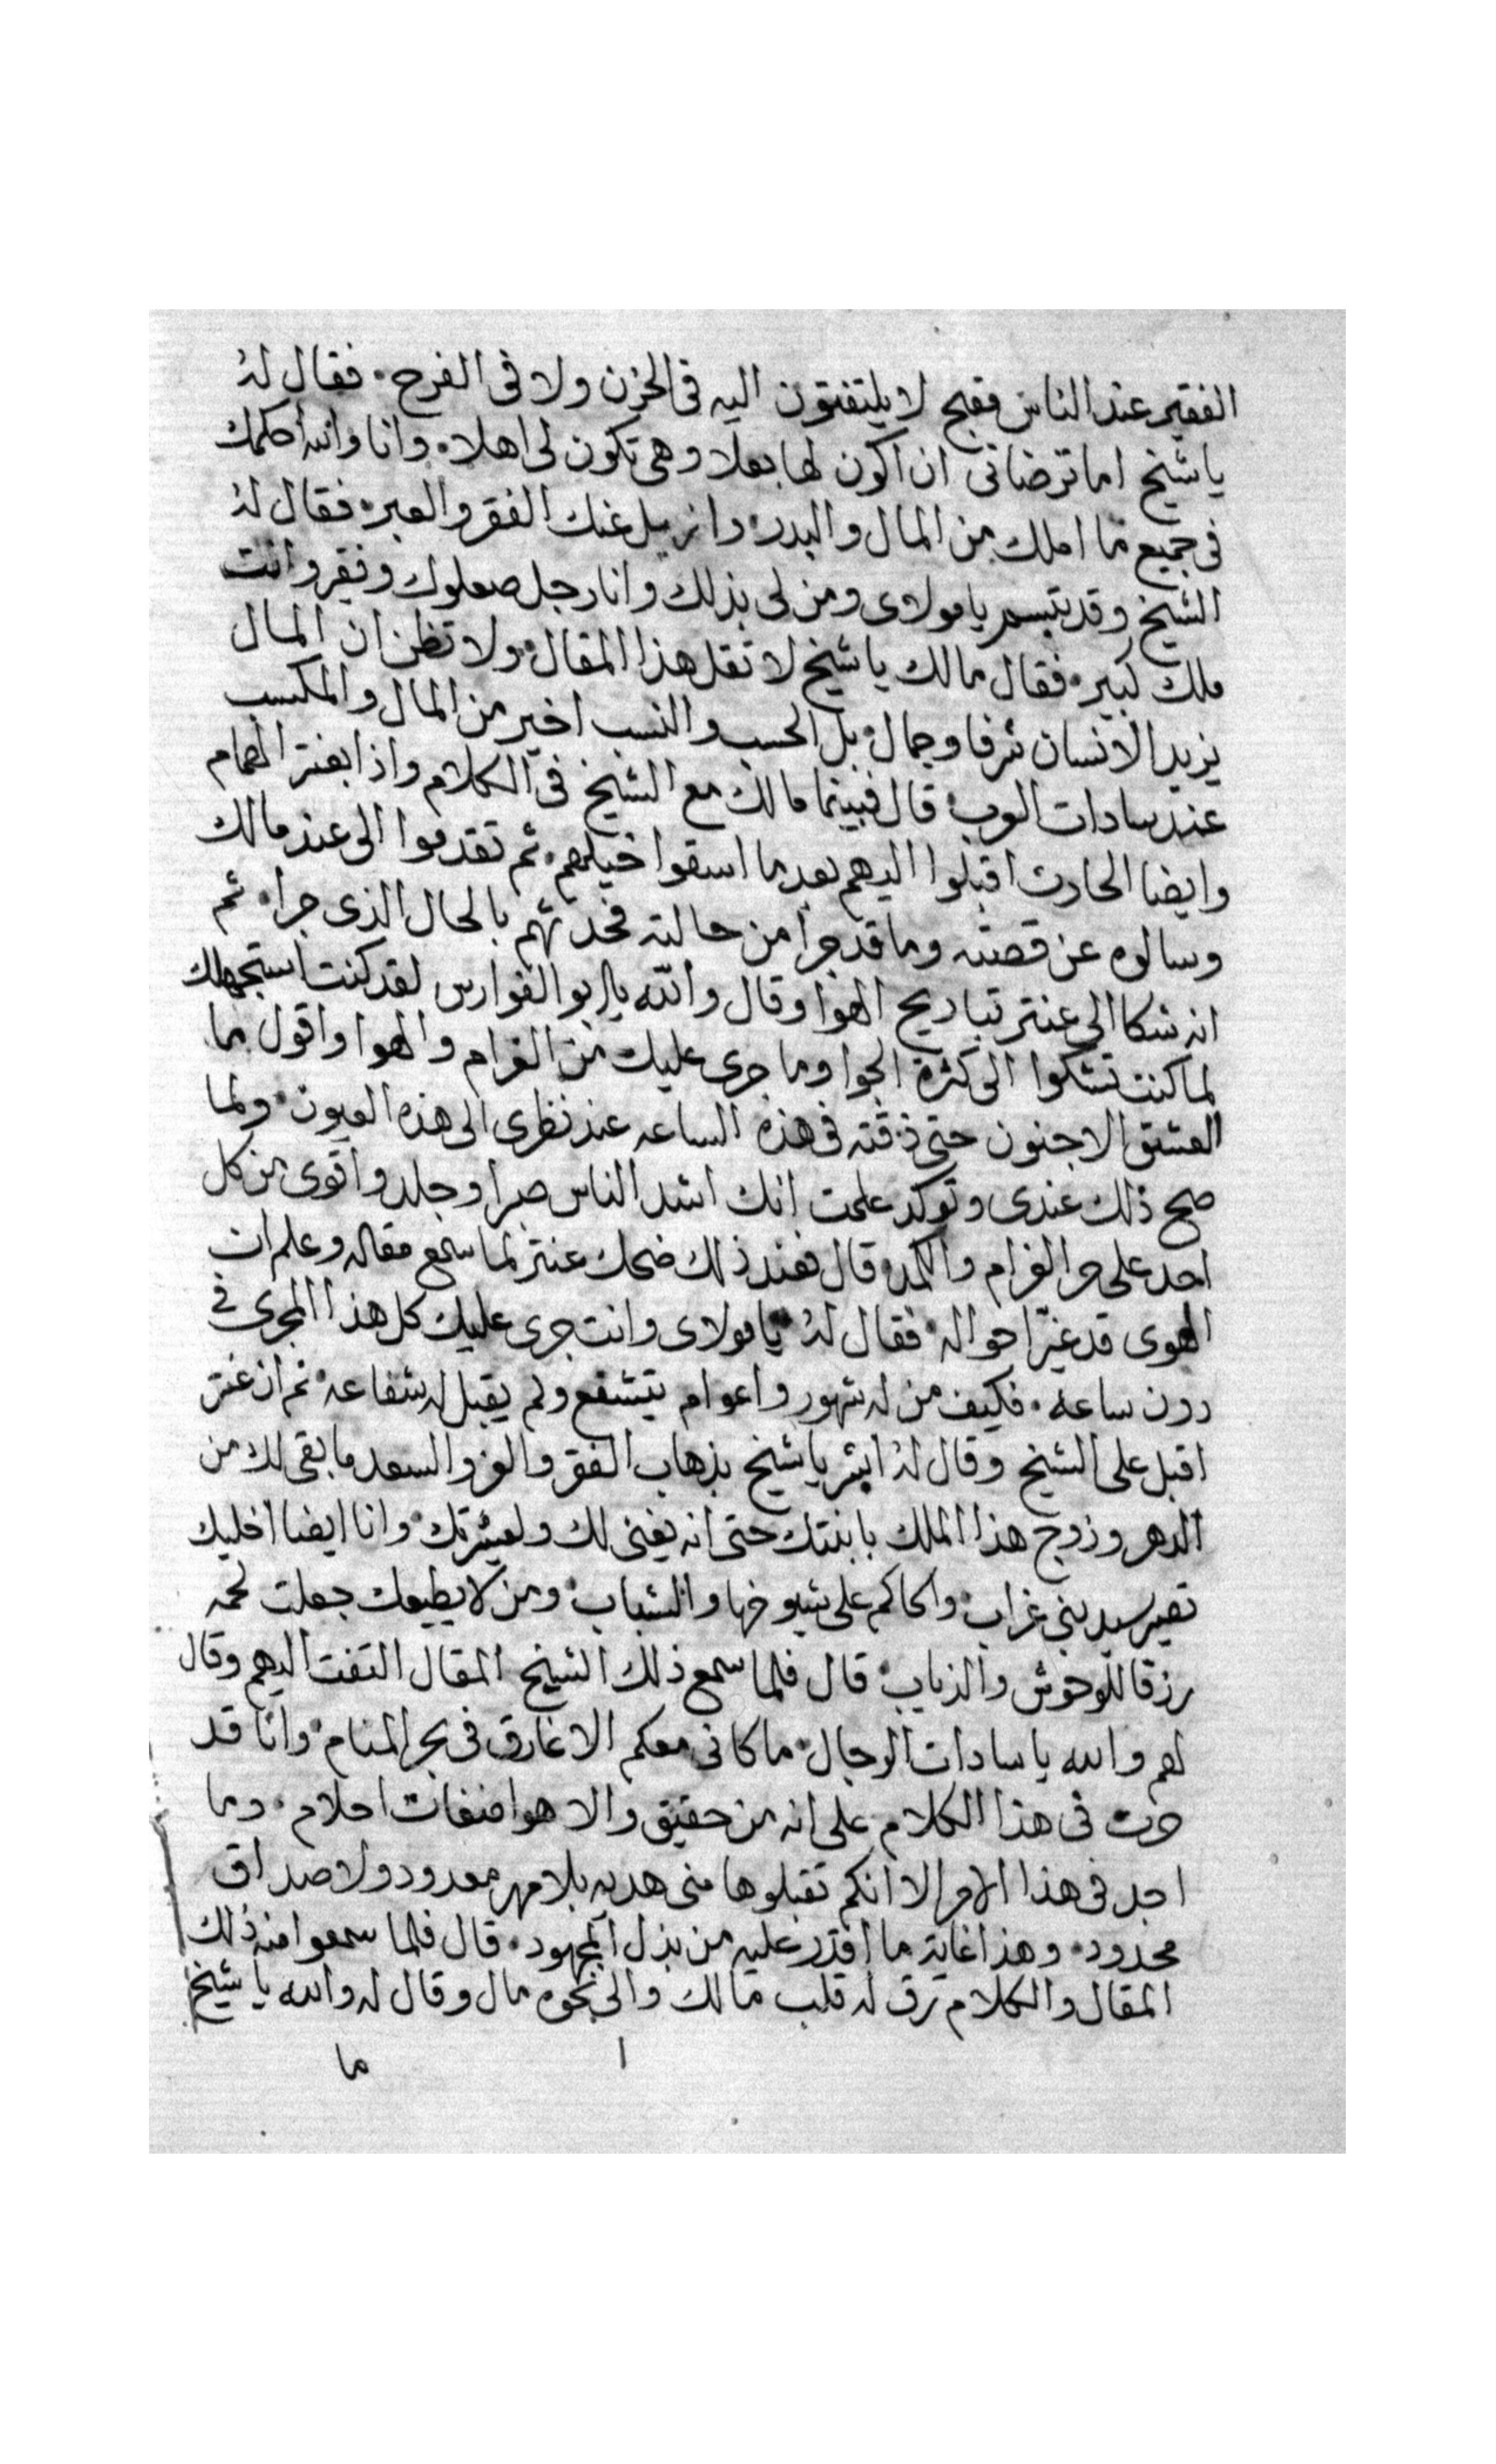 الفقير عند الناس فقبح لا يلتفتون اليه في الحزن ولا في الفرح · فقال له
يا شيخ اما ترضاني ان اكون لها بعلا وهي تكون لي اهلا · وانا والله احكمك
في جميع ما املك من المال والبدر · وازيل عنك الفقر والعبر · فقال له
الشيخ وقد تبسم يا مولاى ومن لى بذلك وانا رجل صعلوك وفقير وانت
ملك كبير · فقال مالك يا شيخ لا تقل هذا المقال · ولا تظن ان المال
يزيد الانسان شرفا وجمال · بل الحسب والنسب اخير من المال والمكسب
عند سادات العرب · قال فبينما مالك مع الشيخ في الكلام واذا بعنتر الهمام
وايضا الحارث اقبلوا اليهم بعد ما اسقوا خيلهم · ثم تقدموا الى عند مالك
وسالوه عن قصته وما قد جرا من حالته فحدثهم بالحال الذى جرا · ثم
انه شكا الى عنتر تباريح الهوا وقال والله يا ابو الفوارس لقد كنت استجهلك
لما كنت تشكوا الى كثرة الجوا وما جرى عليك من الغرام والهوا واقول ما
العشق الا جنون حتى ذقته في هذه الساعه عند نظرى الى هذه العيون · ولما
صح ذلك عندى وتوكد علمت انك اشد الناس صبرا وجلد واقوى من كل
احد على حر الغرام والكمد · قال فعند ذلك ضحك عنتر لما سمع مقاله وعلم ان
الهوى قد غير احواله · فقال له يا مولاى وانت جرى عليك كل هذا المجرى في
دون ساعة · فكيف من له شهور واعوام يتشفع ولم يقبل له شفاعه · ثم ان عنتر
اقبل على الشيخ وقال له ابشر يا شيخ بذهاب الفقر والعز والسعد ما بقى لك من
الدهر وزوج هذا الملك بابنتك حتى انه يغنى لك ولعشيرتك · وانا ايضا اخليك
تصير سيد بنى غراب · والحاكم على شيوخها والشباب · ومن لا يطيعك جعلت لحمه
رزقا للوحوش والذياب · قال فلما سمع ذلك الشيخ المقال التفت اليهم وقال
لهم والله يا سادات الرجال · ما كانى معكم الا غارق في بحر المنام · وانا قد
حرت في هذا الكلام على انه من حقيق والا هوا ضغاث احلام · وما
اجد في هذا الامر الا انكم تقبلوها منى هديه بلا مهر معدود ولا صداق
محدود · وهذا غاية ما اقدر عليه من بذل المجهود · قال فلما سمعوا منه ذلك
المقال والكلام رق له قلب مالك والى نحوه مال وقال له والله يا شيخ
ما